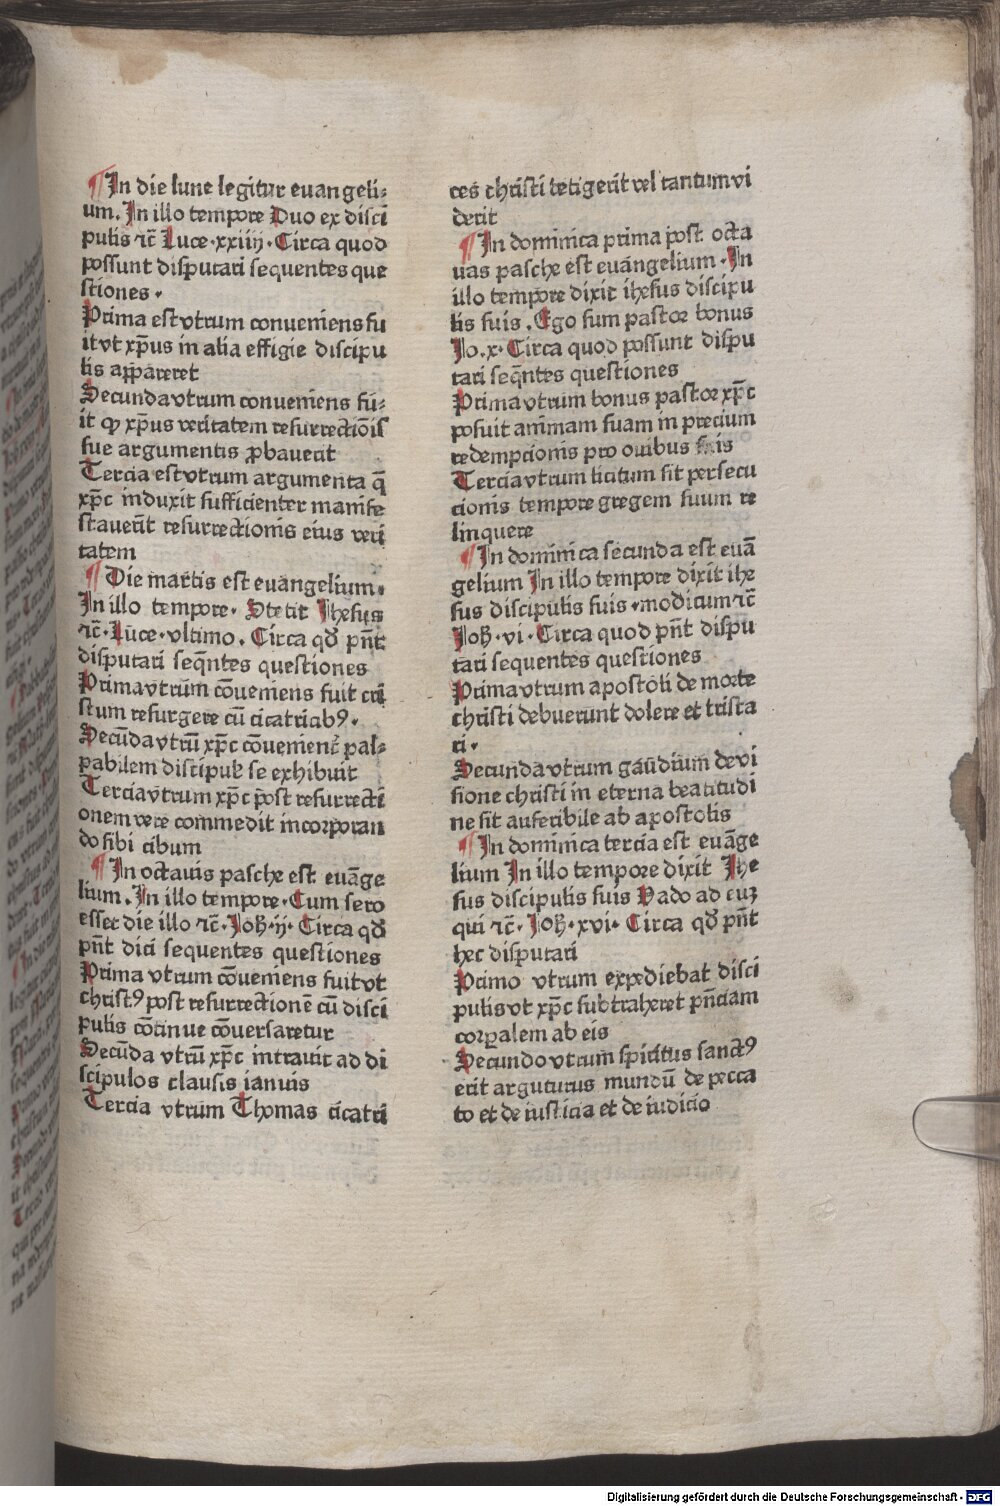 ¶In die lune legitur euangeli⸗
um. In illo tempore Duo ex disci
pulis ⁊c̄ Luce·xxiiij· Circa quod
possunt disputari sequentes que
stiones·
Prima est vtrum conueniens fu
it vt xp̄us in alia effigie discipu
lis apꝑareret
Secunda vtrum conueniens fu⸗
it ꝙ xp̄us veritatem resurrectiōis
sue argumentis ꝓbauerit
Tercia est vtrum argumenta q̄
xp̄c induxit sufficienter manife
stauerīt resurrectionis eius veri
tatem
¶Die martis est euangelium.
In illo tempore. Stetit Jhesus
⁊c̄·Luce·vltimo. Circa qđ pn̄t
disputari seqn̄tes questiones
Prima vtrum cōueniens fuit cri
stum resurgere cū cicatricibꝰ.
Secūda vtrū xp̄c cōuenient̄ pal⸗
pabilem discipul̛ se exhibuit
Tercia vtrum xp̄c post resurrecti
onem vere commedit incorporan
do sibi cibum
¶In octauis pasche est euāge
lium. In illo tempore·Cum sero
esset die illo ⁊c̄·Joh̄·ij· Circa qđ
pn̄t dici sequentes questiones
Prima vtrum cōueniens fuit vt
christꝰ post resurrectionē cū disci
pulis cōtinue cōuersaretur
Secūda vtrū xp̄c intrauit ad di
scipulos clausis ianuis
Tercia vtrum Thomas cicatri
ces christi tetigerit vel tantum vi
derit
¶In dominica prima post octa
uas pasche est euangelium·In
illo tempore dixit ihesus discipu
lis suis. Ego sum pastor bonus
Jo.x· Circa quod possunt dispu
tari seqn̄tes questiones
Prima vtrum bonus pastor xp̄c
posuit animam suam in precium
redempcionis pro ouibus suis
Tercia vtrum licitum sit persecu
cionis tempore gregem suum re
linquere
¶In dominica secunda est euā
gelium In illo tempore dixit ihe
sus discipulis suis·modicum ⁊c̄
Joh̄·vi· Circa quod pn̄t dispu
tari sequentes questiones
Prima vtrum apostoli de morte
christi debuerunt dolere et trista
ri·
Secunda vtrum gaudium de vi
sione christi in eterna beatitudi
ne sit auferibile ab apostolis
¶In dominica tercia est euāge
lium In illo tempore dixit Jhe
sus discipulis suis Vado ad euꝫ
qui ⁊c̄· Joh̄·xvi· Circa qđ pn̄t
hec disputari
Primo vtrum expediebat disci
pulis vt xp̄c subtraheret pn̄ciam
corꝑalem ab eis
Secundo vtrum spiritus sanctꝰ
erit arguturus mundū de pecca
to et de iusticia et de iudicio
Digitalisierung gefördert durch die Deutsche Forschungsgemeinschaft - DFG